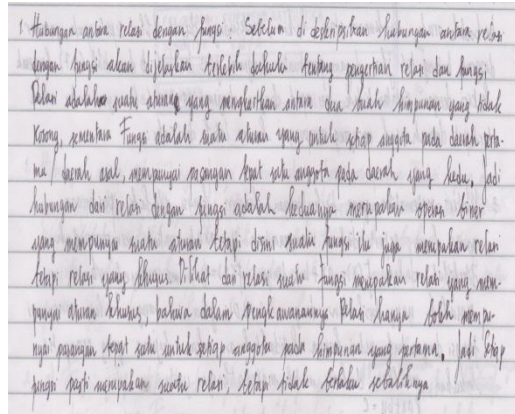 1. Hubungan antara relasi dengan fungsi. Sebelum di deskripsikan hubungan antara relasi
dengan fungsi akan dijelaskan terlebih dahulu tentang pengertian relasi dan fungsi
Relasi adalah suatu aturan yang mengkaitkan antara dua buah himpunan yang tidak
kosong, sementara Fungsi adalah suatu aturan yang untuk setiap anggota pada daerah perta-
ma / daerah asal, mempunyai pasangan tepat satu anggota pada daerah yang kedua. Jadi
hubungan dari relasi dengan fungsi adalah keduanya merupakan operasi biner
yang mempunyai suatu aturan tetapi disini suatu fungsi itu juga merupakan relasi
tetapi relasi yang khusus. Dilihat dari relasi suatu fungsi merupakan relasi yang mem-
punyai aturan khusus, bahwa dalam pengkawanannya Relasi hanya boleh mempu-
nyai pasangan tepat satu untuk setiap anggota pada himpunan yang pertama. Jadi setiap
fungsi pasti merupakan suatu relasi, tetapi tidak berlaku sebaliknya